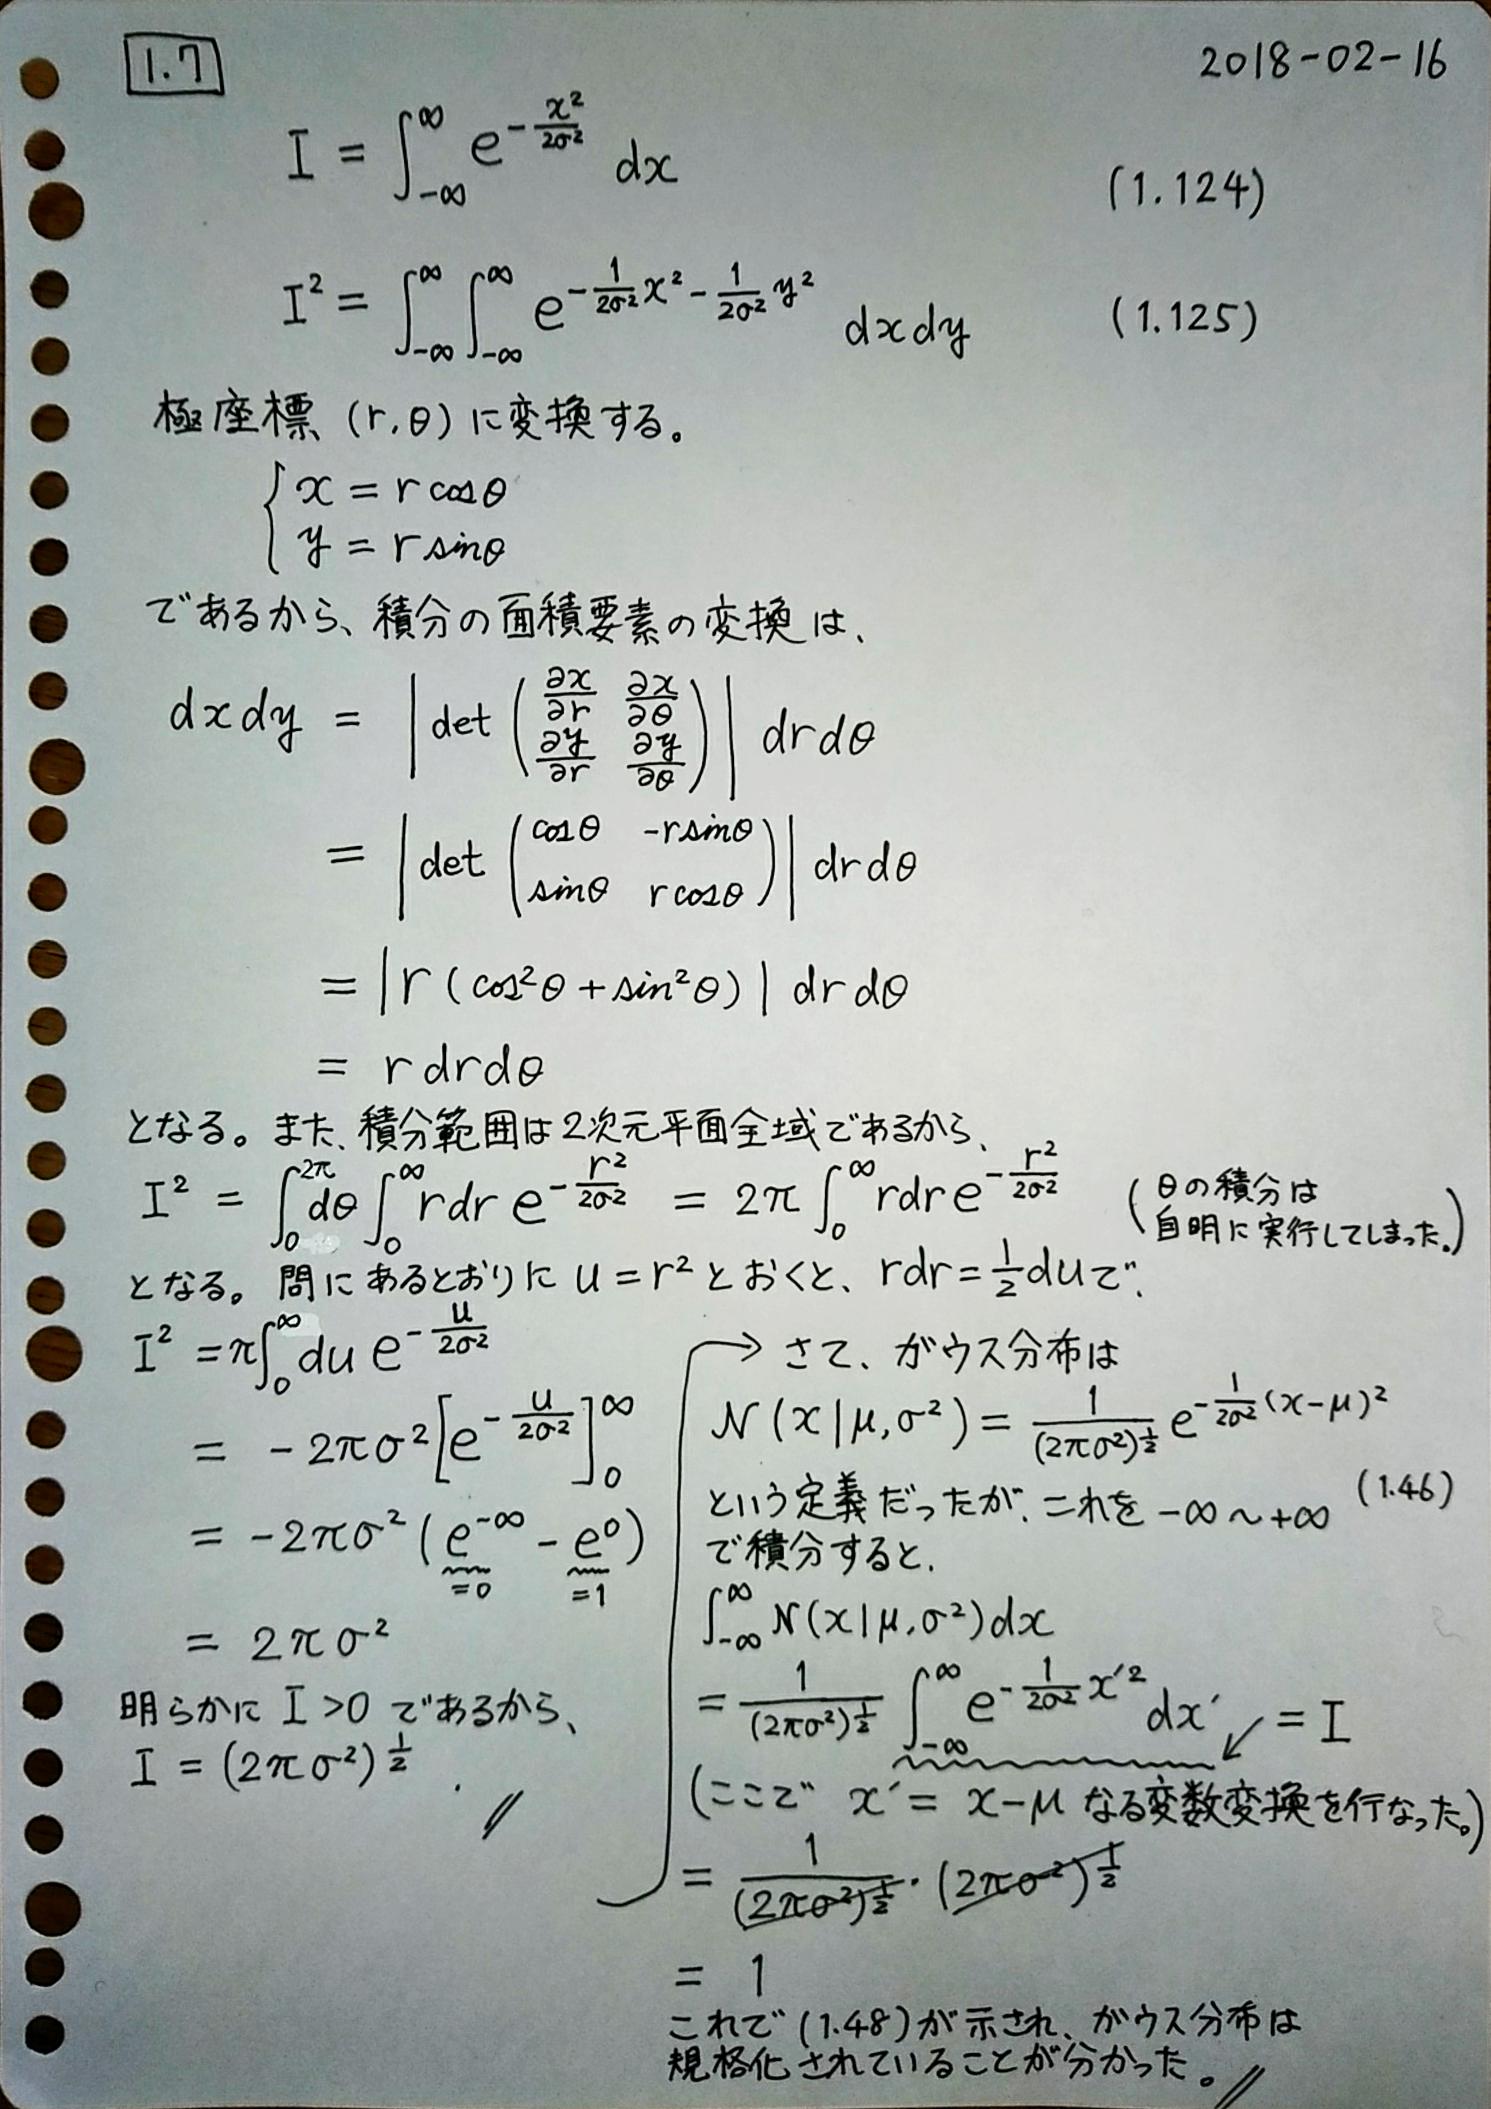 1.7
2018-02-16
I = ∫_{-∞}^{∞} e^{-\frac{x²}{2σ²}} dx (1.124)
I² = ∫_{-∞}^{∞} ∫_{-∞}^{∞} e^{-\frac{1}{2σ²}x² - \frac{1}{2σ²}y²} dxdy (1.125)
極座標 (r, θ) に変換する。
{ x = r cosθ
y = r sinθ
であるから、積分の面積要素の変換は、
dxdy = | det ( \frac{∂x}{∂r} \frac{∂x}{∂θ} \frac{∂y}{∂r} \frac{∂y}{∂θ} ) | drdθ
= | det ( cosθ -rsinθ sinθ rcosθ ) | drdθ
= | r (cos²θ + sin²θ) | drdθ
= r drdθ
となる。また、積分範囲は2次元平面全域であるから、
I² = ∫_{0}^{2π} dθ ∫_{0}^{∞} rdr e^{-\frac{r²}{2σ²}} = 2π ∫_{0}^{∞} rdr e^{-\frac{r²}{2σ²}}
(θの積分は
自明に実行してしまった。)
となる。問にあるとおりに u = r² とおくと、rdr = \frac{1}{2}du で、
I² = π∫_{0}^{∞} du e^{-\frac{u}{2σ²}}
= -2πσ² [e^{-\frac{u}{2σ²}}]_{0}^{∞}
= -2πσ² (e^{-∞} - e^{0})
=0 =1
= 2πσ²
明らかに I > 0 であるから、
I = (2πσ²)^{\frac{1}{2}} . //
→ さて、ガウス分布は
N(x|μ, σ²) = \frac{1}{(2πσ²)^{\frac{1}{2}}} e^{-\frac{1}{2σ²}(x-μ)²}
(1.46)
という定義だったが、これを -∞ ~ +∞
で積分すると、
∫_{-∞}^{∞} N(x|μ, σ²)dx
= \frac{1}{(2πσ²)^{\frac{1}{2}}} ∫_{-∞}^{∞} e^{-\frac{1}{2σ²}x'²} dx' = I
(ここで x' = x-μ なる変数変換を行なった。)
= \frac{1}{(2πσ²)^{\frac{1}{2}}} · (2πσ²)^{\frac{1}{2}}
= 1
これで (1.48) が示され、ガウス分布は
規格化されていることが分かった。//